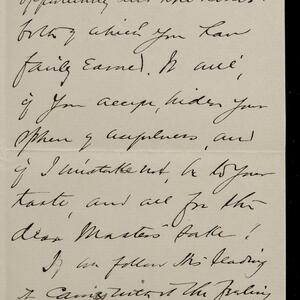 opportunity and
both of which you have
fairly earned. It will,
if you accept, widen your
sphere of usefulness, and
if I mistake not, be to your
taste, and all for the
dear Master's sake!
If we follow His leading
it carries with it the feeling